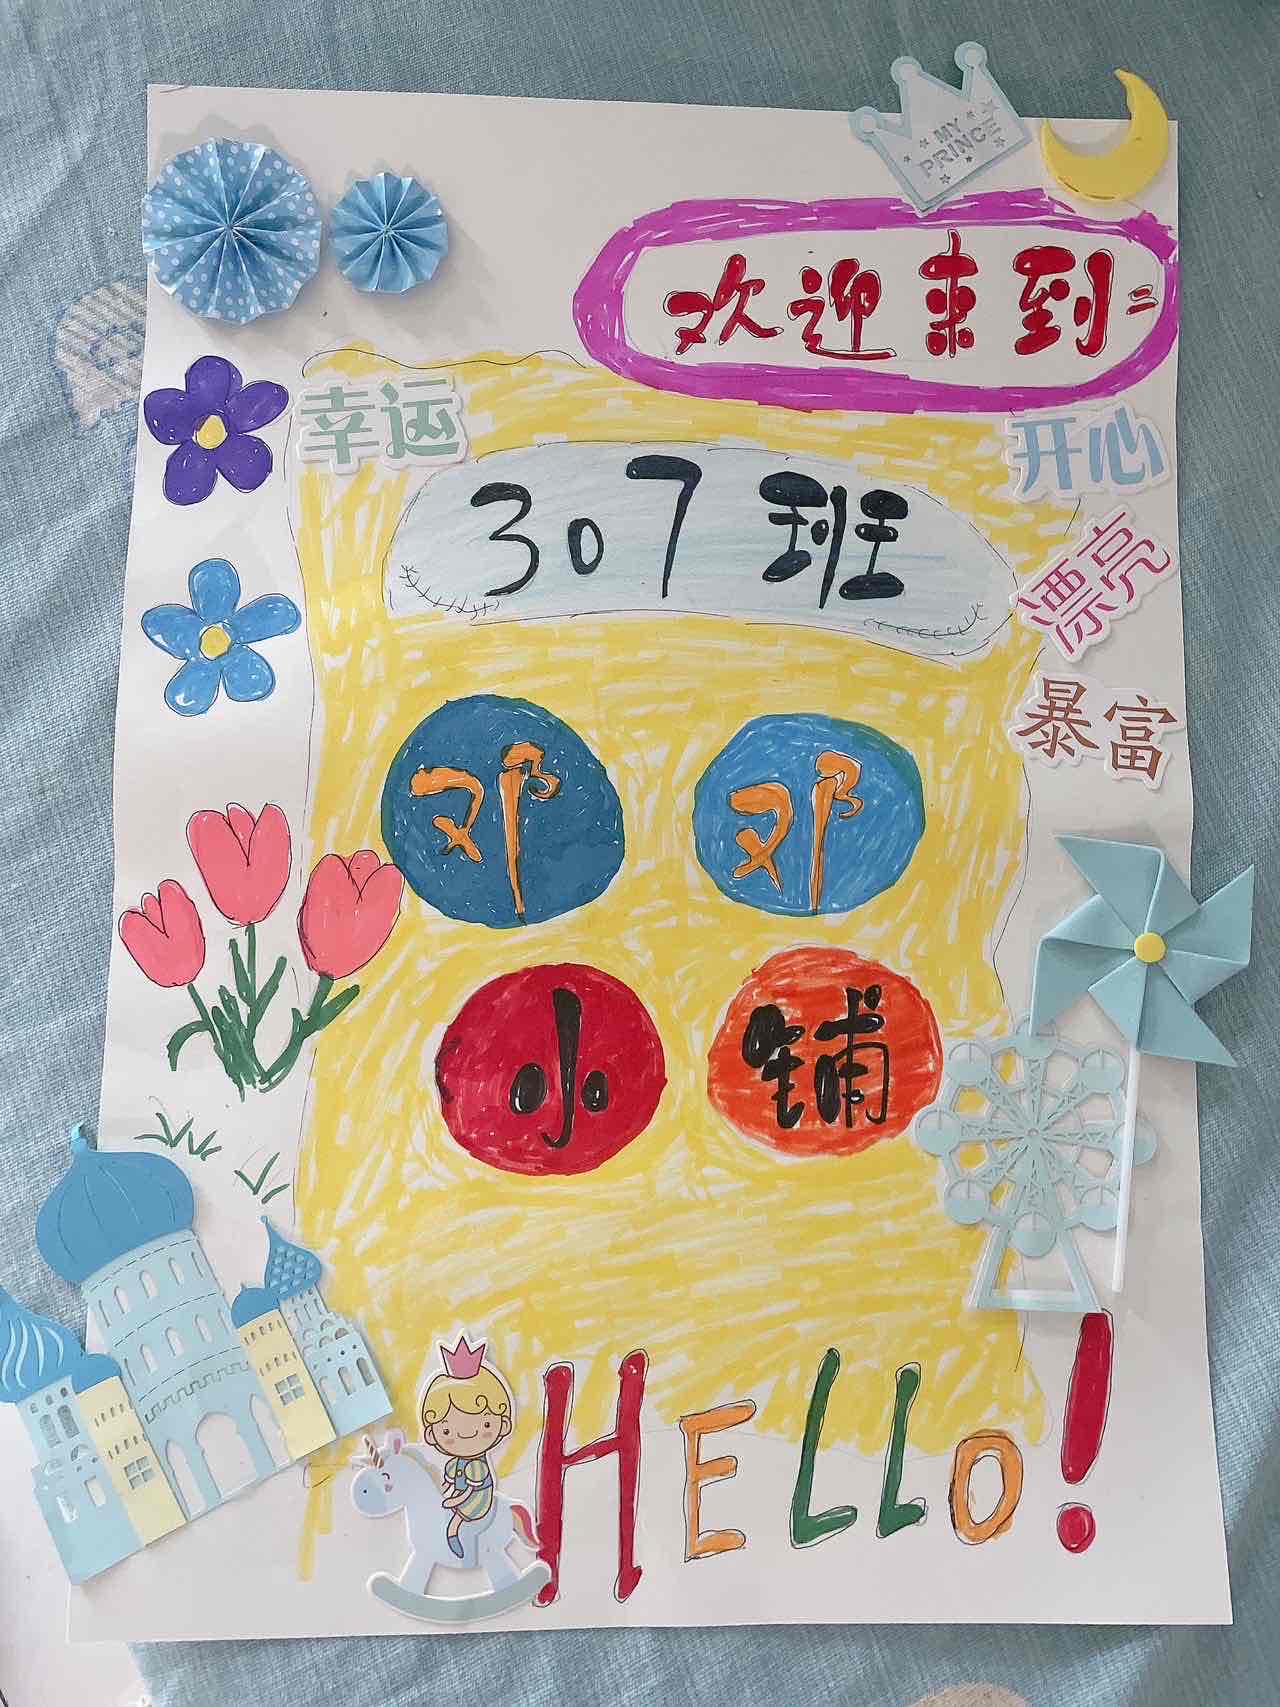 MY
PRINCE
欢迎来到=
幸运
开心
307班
漂亮
暴富
邓邓
小铺
HELLO!